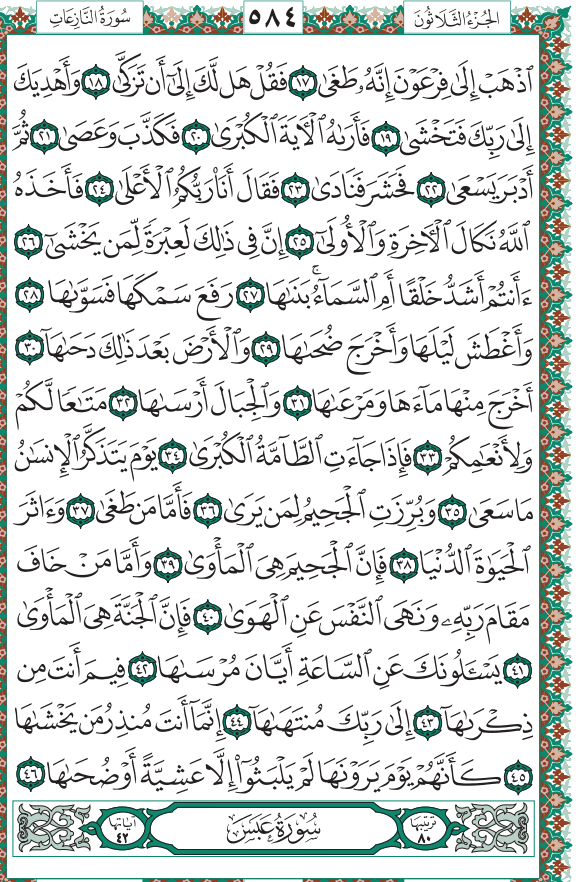 الجُزْءُ الثَّلَاثُونَ ٥٨٤ سُورَةُ النَّازِعَاتِ
ٱذْهَبْ إِلَىٰ فِرْعَوْنَ إِنَّهُۥ طَغَىٰ ١٧ فَقُلْ هَل لَّكَ إِلَىٰٓ أَن تَزَكَّىٰ ١٨ وَأَهْدِيَكَ
إِلَىٰ رَبِّكَ فَتَخْشَىٰ ١٩ فَأَرَىٰهُ ٱلْأٓيَةَ ٱلْكُبْرَىٰ ٢٠ فَكَذَّبَ وَعَصَىٰ ٢١ ثُمَّ
أَدْبَرَ يَسْعَىٰ ٢٢ فَحَشَرَ فَنَادَىٰ ٢٣ فَقَالَ أَنَا۠ رَبُّكُمُ ٱلْأَعْلَىٰ ٢٤ فَأَخَذَهُ
ٱللَّهُ نَكَالَ ٱلْأٓخِرَةِ وَٱلْأُولَىٰٓ ٢٥ إِنَّ فِى ذَٰلِكَ لَعِبْرَةً لِّمَن يَخْشَىٰٓ ٢٦
ءَأَنتُمْ أَشَدُّ خَلْقًا أَمِ ٱلسَّمَآءُ ۚ بَنَىٰهَا ٢٧ رَفَعَ سَمْكَهَا فَسَوَّىٰهَا ٢٨
وَأَغْطَشَ لَيْلَهَا وَأَخْرَجَ ضُحَىٰهَا ٢٩ وَٱلْأَرْضَ بَعْدَ ذَٰلِكَ دَحَىٰهَآ ٣٠
أَخْرَجَ مِنْهَا مَآءَهَا وَمَرْعَىٰهَا ٣١ وَٱلْجِبَالَ أَرْسَىٰهَا ٣٢ مَتَٰعًا لَّكُمْ
وَلِأَنْعَٰمِكُمْ ٣٣ فَإِذَا جَآءَتِ ٱلطَّآمَّةُ ٱلْكُبْرَىٰ ٣٤ يَوْمَ يَتَذَكَّرُ ٱلْإِنسَٰنُ
مَا سَعَىٰ ٣٥ وَبُرِّزَتِ ٱلْجَحِيمُ لِمَن يَرَىٰ ٣٦ فَأَمَّا مَن طَغَىٰ ٣٧ وَءَاثَرَ
ٱلْحَيَوٰةَ ٱلدُّنْيَا ٣٨ فَإِنَّ ٱلْجَحِيمَ هِىَ ٱلْمَأْوَىٰ ٣٩ وَأَمَّا مَنْ خَافَ
مَقَامَ رَبِّهِۦ وَنَهَى ٱلنَّفْسَ عَنِ ٱلْهَوَىٰ ٤٠ فَإِنَّ ٱلْجَنَّةَ هِىَ ٱلْمَأْوَىٰ
٤١ يَسْـَٔلُونَكَ عَنِ ٱلسَّاعَةِ أَيَّانَ مُرْسَىٰهَا ٤٢ فِيمَ أَنتَ مِن
ذِكْرَىٰهَآ ٤٣ إِلَىٰ رَبِّكَ مُنتَهَىٰهَآ ٤٤ إِنَّمَآ أَنتَ مُنذِرُ مَن يَخْشَىٰهَا
٤٥ كَأَنَّهُمْ يَوْمَ يَرَوْنَهَا لَمْ يَلْبَثُوٓا۟ إِلَّا عَشِيَّةً أَوْ ضُحَىٰهَا ٤٦
ترتيبها ٨٠ سُورَةُ عَبَسَ آياتها ٤٢